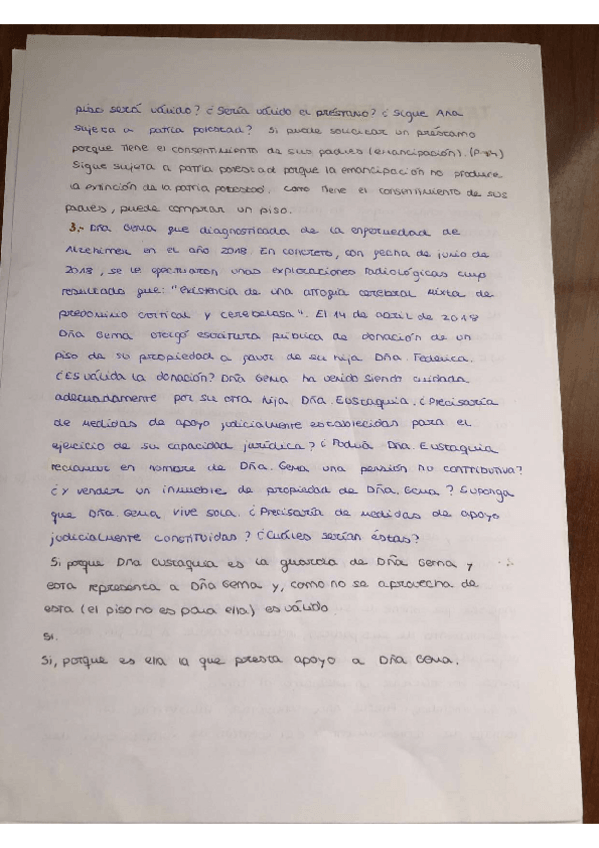 piso será válido? ¿Sería válido el préstamo? ¿Sigue Ana
sujeta a patria potestad? Si puede solicitar un préstamo
porque tiene el consentimiento de sus padres (emancipación).
Sigue sujeta a patria potestad porque la emancipación no produce
la extinción de la patria potestad. Como tiene el consentimiento de sus
padres, puede comprar un piso.
3.- Dña Gema que diagnosticada de la enfermedad de
Alzehimer en el año 2018. En concreto, con fecha de junio de
2018, se le efectuaron unas exploraciones radiológicas cuyo
resultado que: "existencia de una atrofia cerebral mixta de
predominio cortical y cerebelosa". El 14 de abril de 2018
Dña Gema otorgó escritura pública de donación de un
piso de su propiedad a favor de su hija Dña. Federica.
¿Es válida la donación? Dña Gema ha venido siendo cuidada
adecuadamente por su otra hija Dña. Eustaquia. ¿Precisaría
de medidas de apoyo judicialmente establecidas para el
ejercicio de su capacidad jurídica? ¿Podría Dña. Eustaquia
reclamar en nombre de Dña. Gema una pensión no contributiva?
¿Y vender un inmueble de propiedad de Dña. Gema? Suponga
que Dña. Gema vive sola. ¿Precisaría de medidas de apoyo
judicialmente constituidas? ¿Cuáles serían éstas?
Si porque Dña Eustaquia es la guarda de Dña Gema y
esta representa a Dña Gema y, como no se aprovecha de
esta (el piso no es para ella) es válido.
Si.
Si, porque es ella la que presta apoyo a Dña Gema.